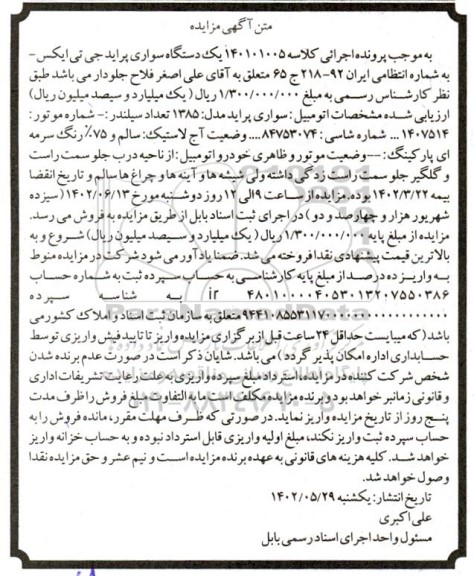 متن آگهی مزایده
به موجب پرونده اجرائی کلاسه ۱۴۰۱۰۱۰۰۵ یک دستگاه سواری پراید جی تی ایکس-
به شماره انتظامی ایران ۹۲- ۲۱۸ ج ۶۵ متعلق به آقای علی اصغر فلاح جلودار می باشد طبق
نظر کارشناس رسمی به مبلغ ۱/۳۰۰/۰۰۰/۰۰۰ ریال ( یک میلیارد و سیصد میلیون ریال)
ارزیابی شده مشخصات اتومبیل: سواری پراید مدل: ۱۳۸۵ تعداد سیلندر: - شماره موتور:
۱۴۰۷۵۱۴ ... شماره شاسی: ۸۴۷۵۳۰۷۴ .... وضعیت آج لاستیک: سالم و ۷۵٪ رنگ سرمه
ای پارکینگ: --- وضعیت موتور و ظاهری خودرو اتومبیل: از ناحیه درب جلو سمت راست
و گلگیر جلو سمت راست زدگی داشته ولی شیشه ها و آینه ها و چراغ ها سالم و تاریخ انقضا
بیمه ۱۴۰۲/۳/۲۲ بوده. مزایده از ساعت ۹ الی ۱۲ روز دوشنبه مورخ ۱۴۰۲/۰۶/۱۳ (سیزده
شهریور هزار و چهارصد و دو ) در اجرای ثبت اسناد بابل از طریق مزایده به فروش می رسد.
مزایده از مبلغ پایه ۱/۳۰۰/۰۰۰/۰۰۰ ریال ( یک میلیارد و سیصد میلیون ریال) شروع و به
بالاترین قیمت پیشنهادی نقدا فروخته می شد. ضمنا یادآور می شود شرکت در مزایده منوط
به واریز ده درصد از مبلغ پایه کارشناسی به حساب سپرده ثبت به شماره حساب
ir ۴۸۰۱۰۰۰۰۴۰۵۳۰۱۳۲۰۷۵۵۰۳۸۶ به شناسه سپرده
۹۴۴۱۰۸۵۵۳۱۱۷۰۰۰۰۰۰۰۰۰۰۰۰۰۰۰۰۰۰ متعلق به سازمان ثبت اسناد و املاک کشور می
باشد ( که میبایست حداقل ۲۴ ساعت قبل از برگزاری مزایده واریز تا تایید فیش واریزی توسط
حسابداری اداره امکان پذیر گردد ) می باشد. شایان ذکر است در صورت عدم برنده شدن
شخص شرکت کننده در مزایده، استرداد مبلغ سپرده واریزی به علت رعایت تشریفات اداری
و قانونی زمانبر خواهد بود و برنده مزایده مکلف است مابه التفاوت مبلغ فروش را ظرف مدت
پنج روز از تاریخ مزایده واریز نماید. در صورتی که ظرف مهلت مقرر، مانده فروش را به
حساب سپرده ثبت واریز نکنند، مبلغ اولیه واریزی قابل استرداد نبوده و به حساب خزانه واریز
خواهد شد. کلیه هزینه های قانونی به عهده برنده مزایده است و نیم عشر و حق مزایده نقدا
وصول خواهد شد.
تاریخ انتشار: یکشنبه ۱۴۰۲/۰۵/۲۹
علی اکبری
مسئول واحد اجرای اسناد رسمی بابل